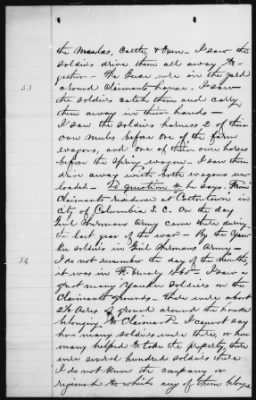 the Meals, Cattle, & Corn - I saw the
soldiers drive them all away to-
gether - The Geese were in the yard
53 around claimants house - I saw
the soldiers catch them and carry
them away in their hands -
I saw the soldiers harness 2 of their
own mules before one of the farm
wagons, and one of their own horses
before the spring wagon - I saw them
drive away with both wagons un
loaded - To question he says. From
Claimants residence at Cottontown in
city of Columbia S. C. On the day
Genl Shermans Army came there during
the last year of the war - By the Yan
kee soldiers in Genl Shermans Army -
54 I do not remember the day of the month,
it was in February 1865 - I saw a
great many Yankee soldiers on the
Claimants grounds. There were about
Acres of ground around the house
belonging to Claimant - I cannot say
how many soldiers were there, or how
many helped to take the property, there
were several hundred soldiers there
I do not know the company or
regiment to which any of them belong